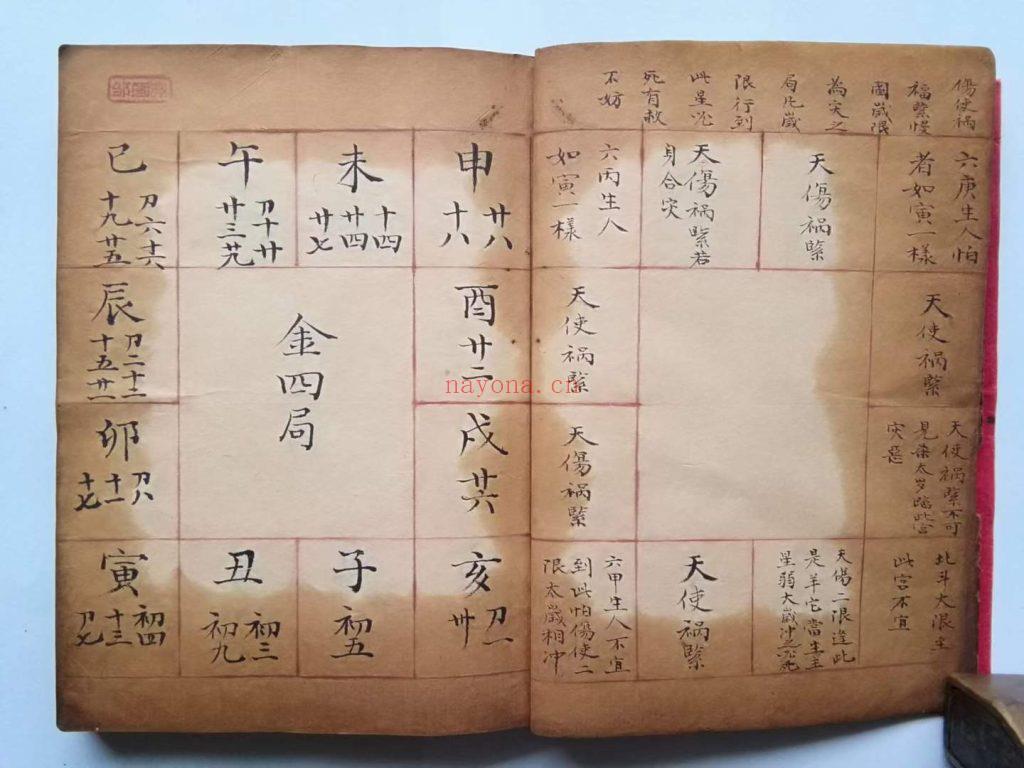 巳
刀六十六
十九廿五
午
刀十廿
廿三廿九
未
十四
廿四
廿七
申
廿八
十八
辰
刀二十二
十五廿一
金四局
酉廿二
卯
刀八
十一
十七
戌廿六
寅
初四
十三
刀七
丑
初三
初九
子
初五
亥
刀一
卅
傷使禍
福緊慢
圖歲限
為災之
局比歲
限行到
此星況
死有赦
不妨
六庚生人怕
者如寅一樣
天傷禍緊
天傷禍緊若
身合災
六丙生人
如寅一樣
天使禍緊
天使禍緊
天使禍緊不可
見柒太岁臨此宮
災惡
天傷禍緊
北斗大限主
此宮不宜
天傷二限逢此
是羊它當生主
星弱大歲沖
天使禍緊
六甲生人不宜
到此怕傷使二
限太歲相冲
nayona.cn